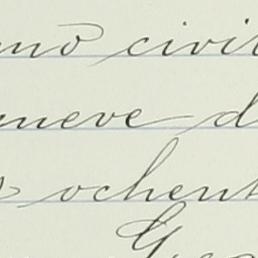 ano civil
nueve d
s ochent
Gre